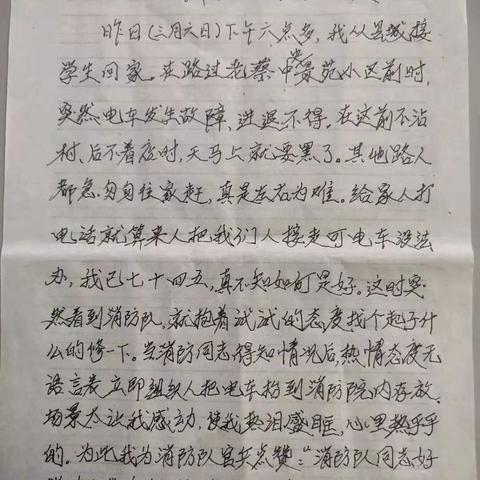 昨日(三月六日)下午六点多,我从县城接
学生回家。在路过老蔡中央景苑小区前时,
突然电车发生故障,进退不得。在这前不沾
村、后不着店时,天马上就要黑了。其他路人
都急匆匆往家赶,真是左右为难。给家人打
电话就算来人把我们人接走可电车没法
办,我已七十四五,真不知如何是好。这时突
然看到消防队,就抱着试试的态度找个起子什
么的修一下。当消防同志得知情况后,热情态度无
语言表立即组织人把电车抬到消防院内存放。
场景太让我感动,使我热泪盛眶,心里热乎乎
的。为此我为消防队官兵点赞:“消防队同志好